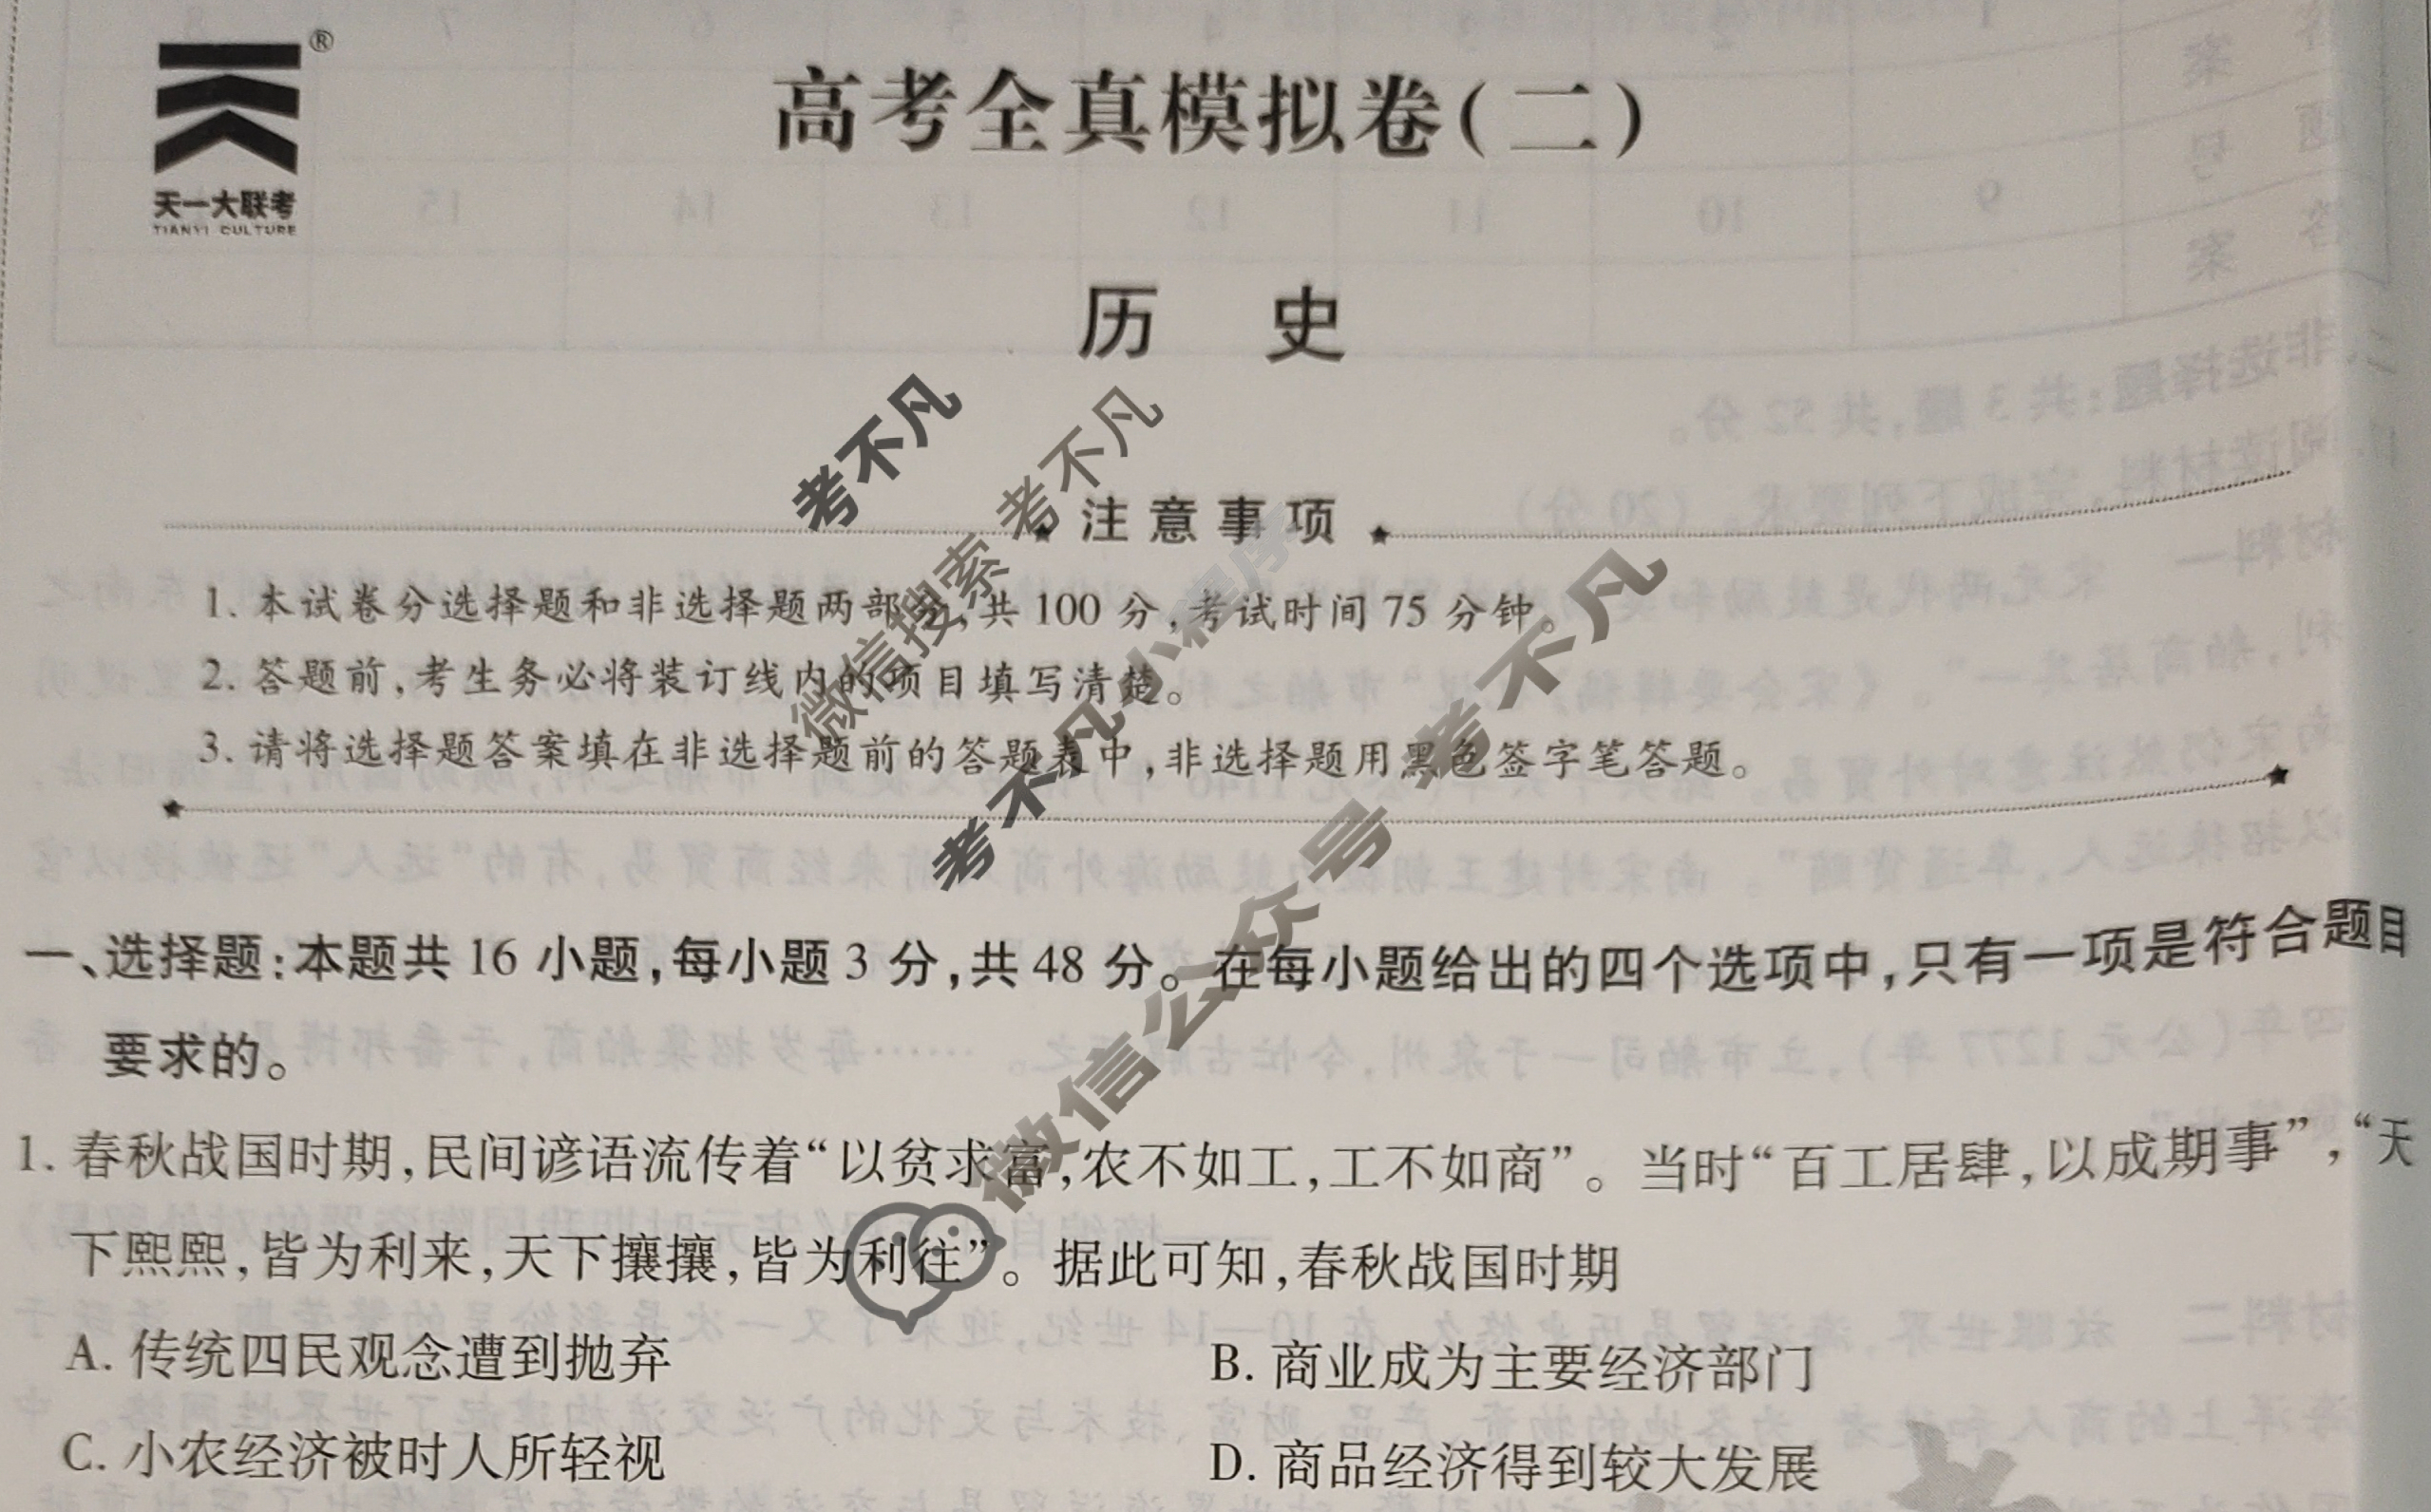 ®
高考全真模拟卷(二)
天一大联考
TIANYI CULTURE
历 史
考不凡
微信搜索 考不凡
注意事项
1. 本试卷分选择题和非选择题两部分,共 100 分,考试时间 75 分钟。
2. 答题前,考生务必将装订线内的项目填写清楚。
3. 请将选择题答案填在非选择题前的答题表中,非选择题用黑色签字笔答题。
考不凡小程序
微信公众号 考不凡
一、选择题:本题共 16 小题,每小题 3 分,共 48 分。在每小题给出的四个选项中,只有一项是符合题目
要求的。
1. 春秋战国时期,民间谚语流传着“以贫求富,农不如工,工不如商”。当时“百工居肆,以成期事”,“天
下熙熙,皆为利来,天下攘攘,皆为利往”。据此可知,春秋战国时期
A. 传统四民观念遭到抛弃
B. 商业成为主要经济部门
C. 小农经济被时人所轻视
D. 商品经济得到较大发展